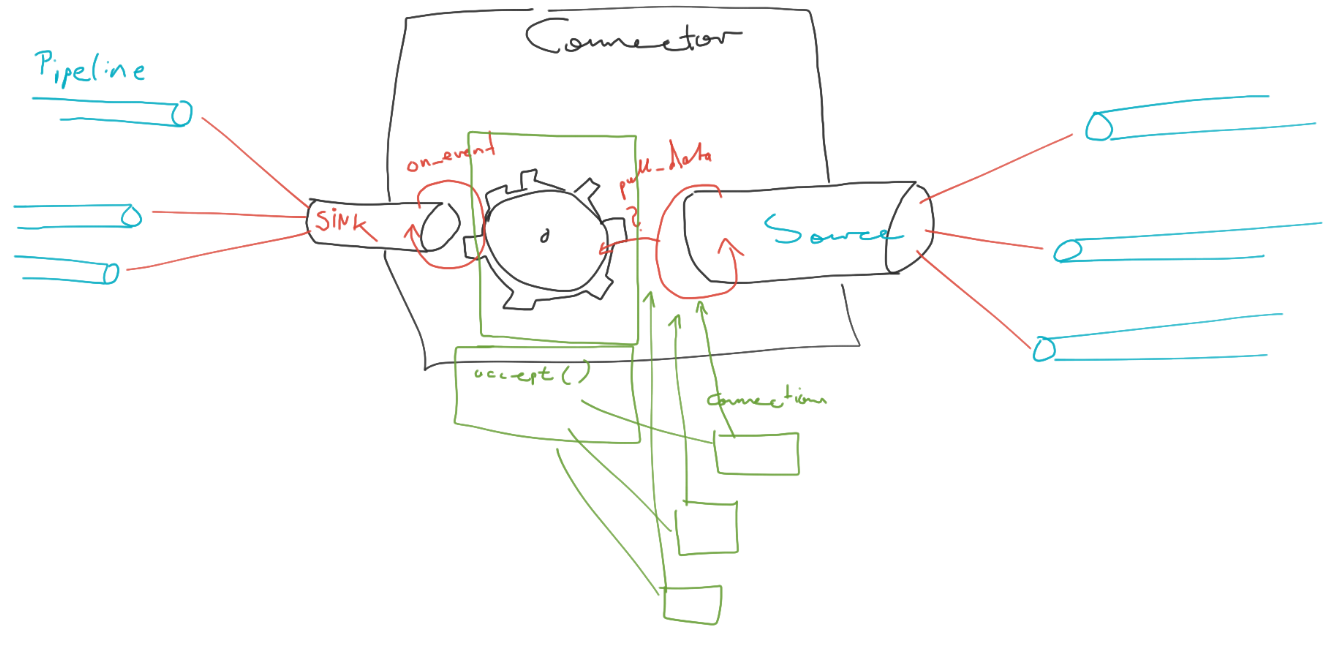 Connector
Pipeline
on_event
pull_data
?
SINK
Source
accept()
Connections